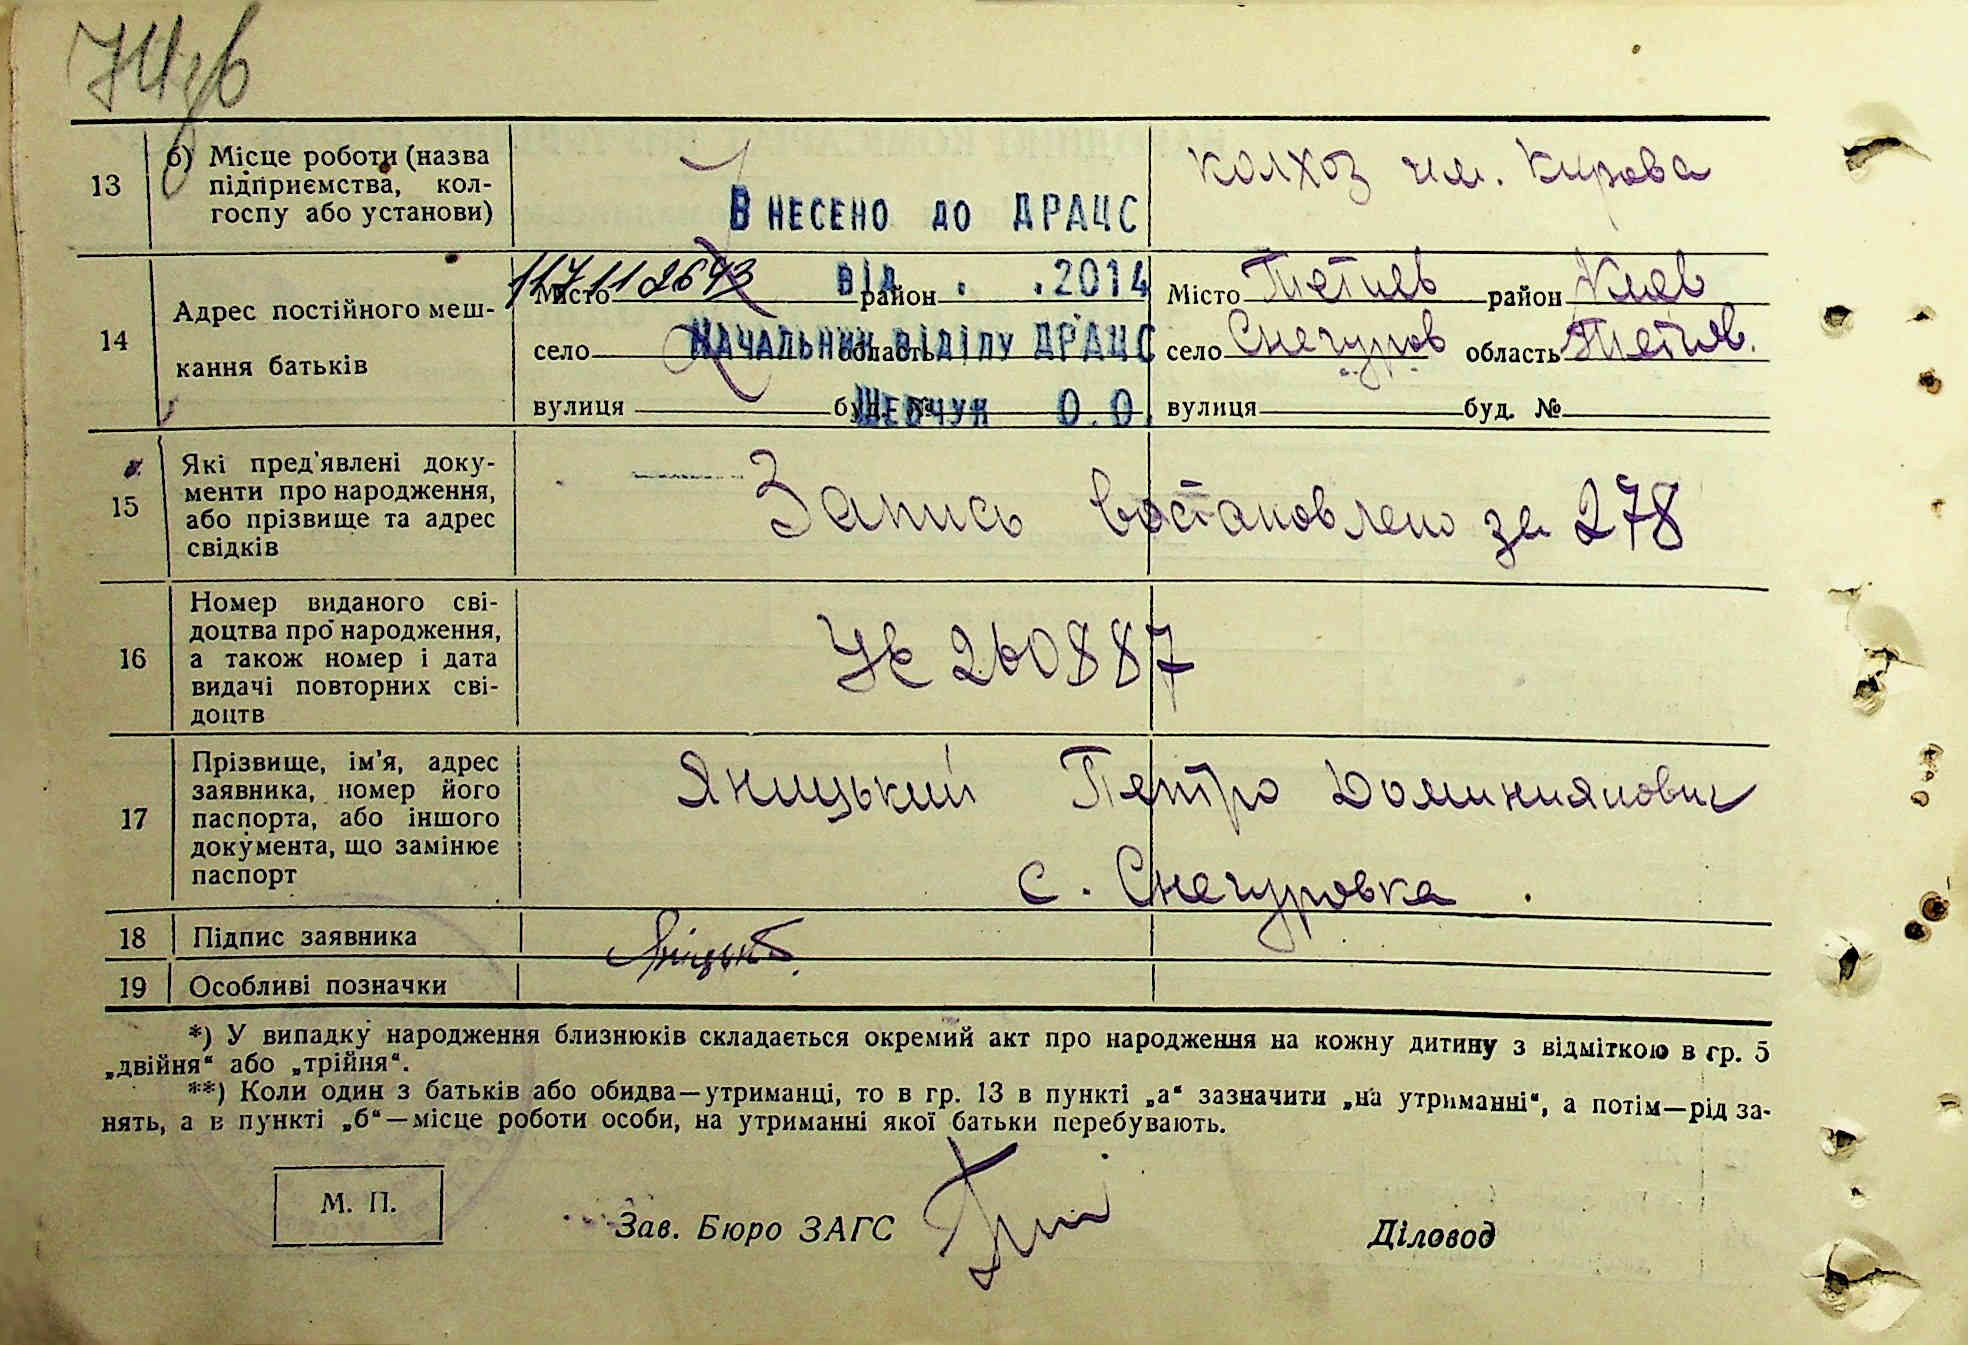 13 б) Місце роботи (назва
підприємства, кол-
госпу або установи)
колхоз им. Кирова
Внесено до ДРАЦС
від . .2014
Начальник відділу ДРАЦС
Шевчук О.О.
14 Адрес постійного меш-
кання батьків
Місто район
село область
вулиця буд. №
Місто Тетиев район Киев
село Снегуров область Тетиев.
вулиця буд. №
15 Які пред'явлені доку-
менти про народження,
або прізвище та адрес
свідків
Запись востановлено за 278
16 Номер виданого сві-
доцтва про народження,
а також номер і дата
видачі повторних сві-
доцтв
260887
17 Прізвище, ім'я, адрес
заявника, номер його
паспорта, або іншого
документа, що замінює
паспорт
Яницький Петро Доминиянович
с. Снегуровка.
18 Підпис заявника
19 Особливі позначки
*) У випадку народження близнюків складається окремий акт про народження на кожну дитину з відміткою в гр. 5
„двійня“ або „трійня“.
**) Коли один з батьків або обидва—утриманці, то в гр. 13 в пункті „а“ зазначити „на утриманні“, а потім—рід за-
нять, а в пункті „б“—місце роботи особи, на утриманні якої батьки перебувають.
М. П.
Зав. Бюро ЗАГС
Діловод